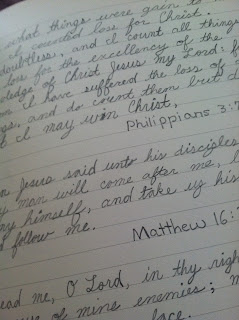 what things were gain to
I counted loss for Christ.
doubtless, and I count all things
loss for the excellency of the
ledge of Christ Jesus my Lord: f
I have suffered the loss of
gs, and do count them but d
t I may win Christ,
Philippians 3:7
n Jesus said unto his disciples
y man will come after me, l
ny himself, and take up his
d follow me.
Matthew 16:
ead me, O Lord, in thy righ
use of mine enemies; m
face.